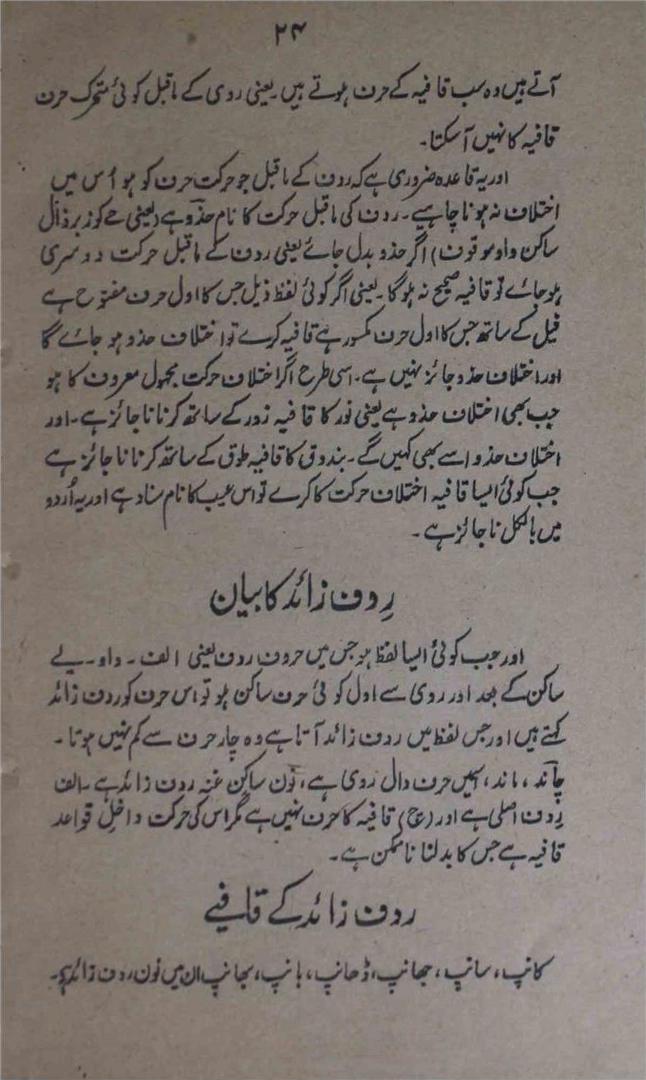 ۲۴
آتے ہیں وہ سب قافیہ کے حرف ہوتے ہیں۔ یعنی روی کے ماقبل کوئی متحرک حرف
قافیہ کا نہیں آ سکتا۔
اور یہ قاعدہ ضروری ہے کہ ردف کے ماقبل جو حرکت حرف کو ہو اُس میں
اختلاف نہ ہونا چاہیے۔ ردف کی ماقبل حرکت کا نام حذو ہے (یعنی حے کو زبر ذال
ساکن واو موقوف) اگر حذو بدل جائے یعنی ردف کے ماقبل حرکت دوسری
ہو جائے تو قافیہ صحیح نہ ہوگا۔ یعنی اگر کوئی لفظ ذیل جس کا اول حرف مفتوح ہے
فیل کے ساتھ جس کا اول حرف مکسور ہے قافیہ کرے تو اختلاف حذو ہو جائے گا
اور اختلاف حذو جائز نہیں ہے۔ اسی طرح اگر اختلاف حرکت مجہول معروف کا ہو
جب بھی اختلاف حذو ہے یعنی نور کا قافیہ زور کے ساتھ کرنا ناجائز ہے۔ اور
اختلاف حذو اسے بھی کہیں گے۔ بندوق کا قافیہ طوق کے ساتھ کرنا ناجائز ہے
جب کوئی ایسا قافیہ اختلاف حرکت کا کرے تو اس عیب کا نام سناد ہے اور یہ اُردو
میں بالکل ناجائز ہے۔
رِدف زائد کا بیان
اور جب کوئی ایسا لفظ ہو جس میں حروف ردف یعنی الف۔ واو۔ یے
ساکن کے بعد اور روی سے اول کوئی حرف ساکن ہو تو اس حرف کو ردف زائد
کہتے ہیں اور جس لفظ میں ردف زائد آتا ہے وہ چار حرف سے کم نہیں ہوتا۔
چاند، ماند، اسمیں حرف دال روی ہے، نون ساکن غنہ ردف زائد ہے۔ الف
رِدف اصلی ہے اور (چ) قافیہ کا حرف نہیں ہے مگر اس کی حرکت داخل قواعد
قافیہ ہے جس کا بدلنا ناممکن ہے۔
ردف زائد کے قافیے
کانپ، سانپ، جھانپ، ڈھانپ، ہانپ، بھانپ ان میں نون ردف زائد ہے۔